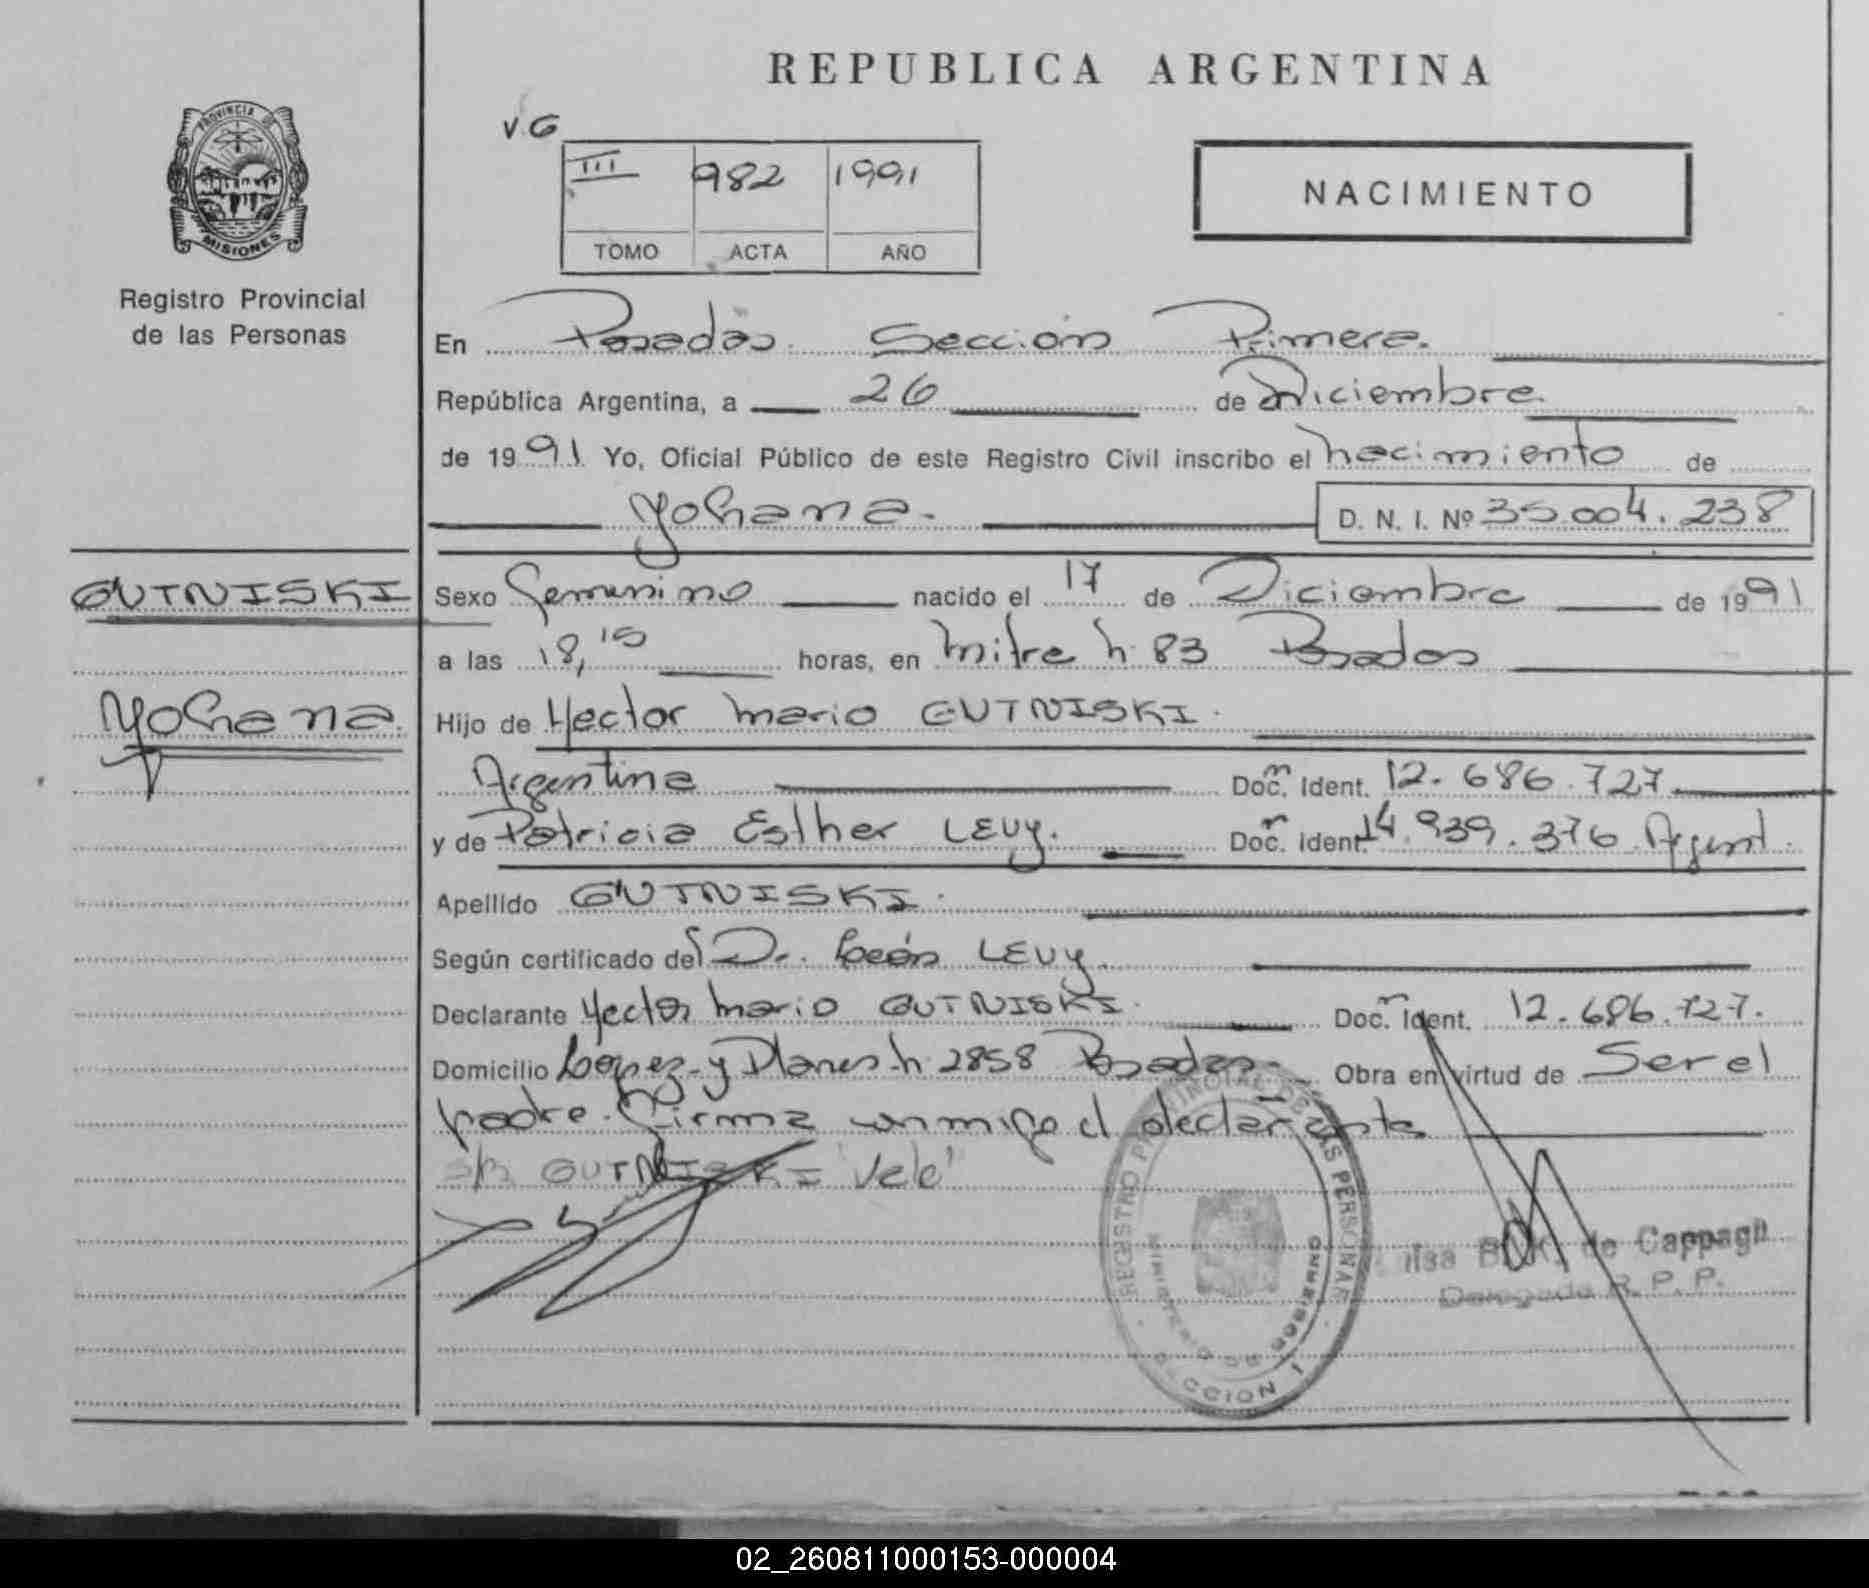 REPUBLICA ARGENTINA
V.G
III 982 1991
TOMO ACTA AÑO
NACIMIENTO
PROVINCIA DE
MISIONES
Registro Provincial
de las Personas
En Posadas Sección Primera.
República Argentina, a 26 de Diciembre
de 1991 Yo, Oficial Público de este Registro Civil inscribo el nacimiento de
Yohana. D. N. I. Nº 35.004.238
GUTNISKI
Yohana.
Sexo Femenino nacido el 17 de Diciembre de 1991
a las 18,15 horas, en Mitre n. 83 Posadas
Hijo de Hector Mario GUTNISKI.
Argentina Doc. Ident. 12.686.727
y de Patricia Esther LEVY. Doc. Ident. 14.939.376 Argent.
Apellido GUTNISKI.
Según certificado del Dr. León LEVY.
Declarante Hector Mario GUTNISKI. Doc. Ident. 12.686.727.
Domicilio Lopez y Planes n. 2858 Posadas. Obra en virtud de Ser el
padre. Firma conmigo el declarante
s/r GUTNISKI Vale
REGISTRO PROVINCIAL DE LAS PERSONAS
MINISTERIO DE GOBIERNO
SECCION 1
de Cappagli
Delegada R. P. P.
02_260811000153-000004